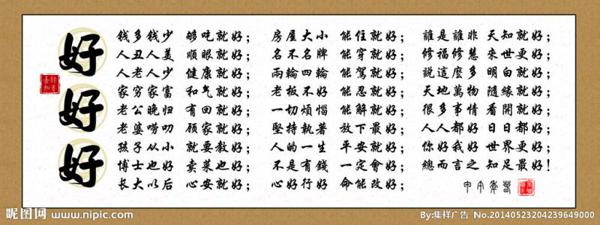 好好好
钱多钱少 够吃就好；
人丑人美 顺眼就好；
人老人少 健康就好；
家穷家富 和气就好；
老公晚归 有回就好；
老婆唠叨 顾家就好；
孩子从小 就要教好；
博士也好 卖菜也好；
长大以后 心安就好；
房屋大小 能住就好；
名不名牌 能穿就好；
兩輪四輪 能駕就好；
老板不好 能忍就好；
一切煩惱 能解就好；
堅持執著 放下最好；
人的一生 平安就好；
不是有錢 一定會好；
心好行好 命能改好；
誰是誰非 天知就好；
修福修慧 來世更好；
說這麼多 明白就好；
天地萬物 隨緣就好；
很多事情 看開就好；
人人都好 日日都好；
你好我好 世界更好；
總而言之 知足最好！
昵图网
www.nipic.com
By:集祥广告 No.20140523204239649000